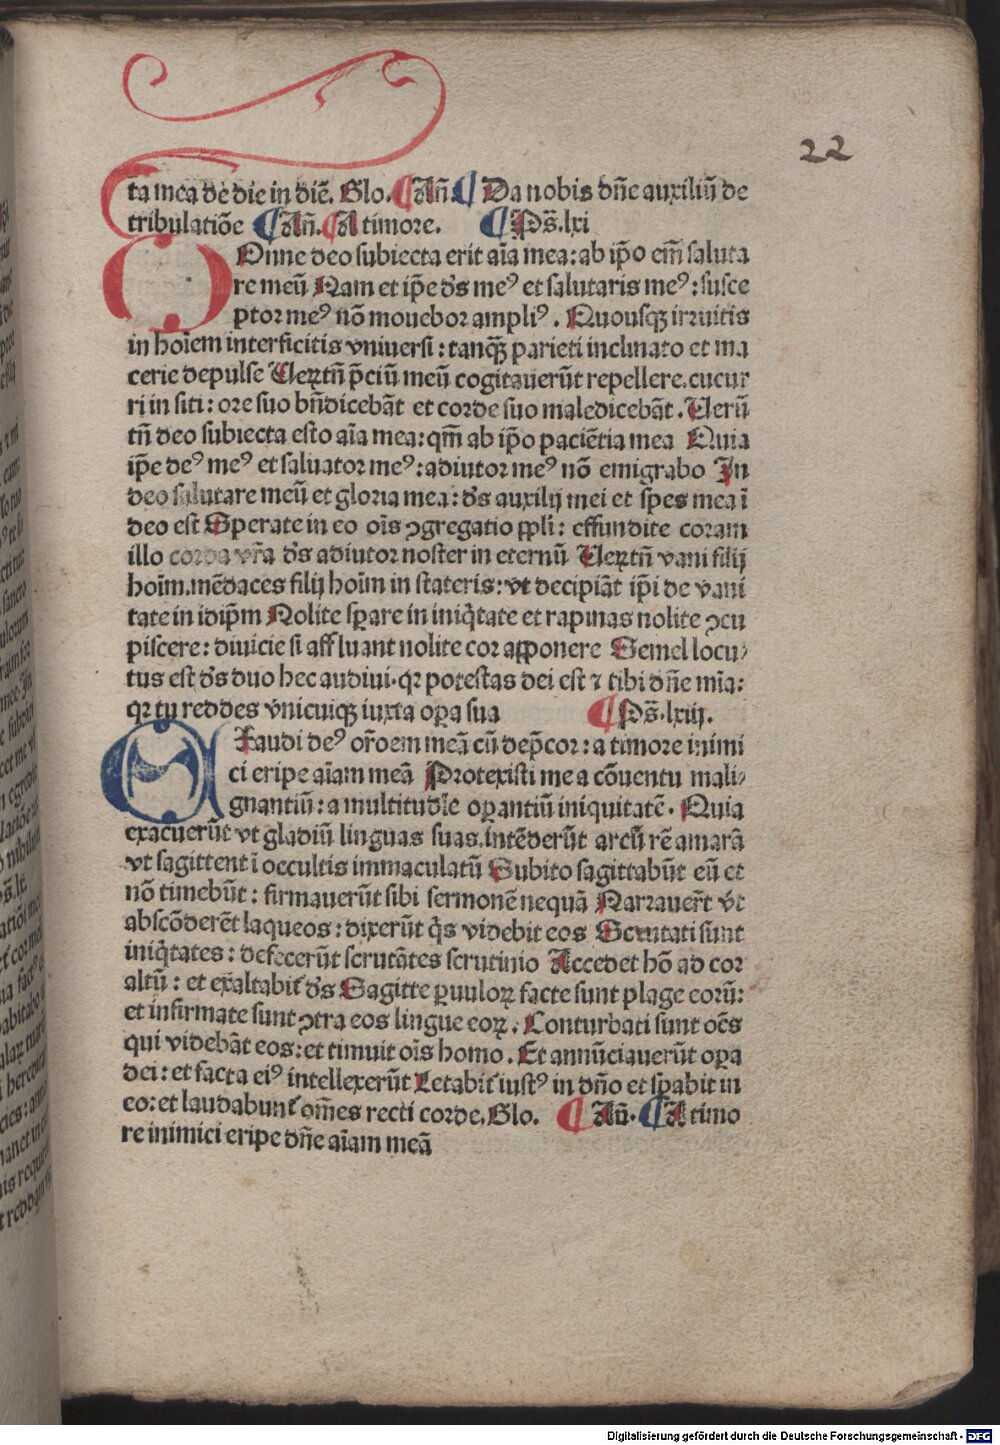 22
ta mea de die in diē. Glo. ¶ Añ. ¶ Da nobis dñe auxiliū de
tribulatiōe ¶ Añ. ¶ A timore. ¶ Ps̄.lxi
Onne deo subiecta erit aīa mea: ab ip̄o em̄ saluta
re meū Nam et ip̄e ds̄ meꝰ et salutaris meꝰ: susce
ptor meꝰ nō mouebor ampliꝰ. Quousqꝫ irruitis
in hoīem interficitis vniuersi: tanqꝫ̄ parieti inclinato et ma
cerie depulse Ueꝝtñ p̄ciū meū cogitauerūt repellere.cucur
ri in siti: ore suo bn̄dicebāt et corde suo maledicebāt. Uerū
tñ deo subiecta esto aīa mea: qm̄ ab ip̄o paciētia mea Quia
ip̄e deꝰ meꝰ et saluator meꝰ: adiutor meꝰ nō emigrabo In
deo salutare meū et gloria mea: ds̄ auxilij mei et spes mea ī
deo est Sperate in eo oīs ↄgregatio ppl̄i: effundite coram
illo corda vr̄a ds̄ adiutor noster in eternū Ueꝝtñ vani filij
hoīm.mēdaces filij hoīm in stateris: vt decipiāt ip̄i de vani
tate in idip̄m Nolite sꝑare in iniq̄tate et rapinas nolite ↄcu
piscere: diuicie si affluant nolite cor apponere Semel locu/
tus est ds̄ duo hec audiui. qꝛ potestas dei est ⁊ tibi dñe mīa:
qꝛ tu reddes vnicuiqꝫ iuxta oꝑa sua ¶ Ps̄.lxiij.
Exaudi deꝰ or̄oem meā cū dep̄cor: a timore inimi
ci eripe aīam meā Protexisti me a cōuentu mali/
gnantiū: a multitudīe oꝑantiū iniquitatē. Quia
exacuerūt vt gladiū linguas suas.intēderūt arcū rē amarā
vt sagittent ī occultis immaculatū Subito sagittabūt eū et
nō timebūt: firmauerūt sibi sermonē nequā Narrauer̄t vt
abscōderēt laqueos: dixerūt q̄s videbit eos Scrutati sunt
iniq̄tates: defecerūt scrutātes scrutinio Accedet hō ad cor
altū: et exaltabit̄ ds̄ Sagitte ꝑuuloꝝ facte sunt plage eorū:
et infirmate sunt ↄtra eos lingue eoꝝ. Conturbati sunt oēs
qui videbāt eos: et timuit oīs homo. Et annūciauerūt oꝑa
dei: et facta eiꝰ intellexerūt Letabit̄ iustꝰ in dño et sꝑabit in
eo: et laudabunt̄ om̄es recti corde. Glo. ¶ Añ. ¶ A timo
re inimici eripe dñe aīam meā
Digitalisierung gefördert durch die Deutsche Forschungsgemeinschaft - DFG